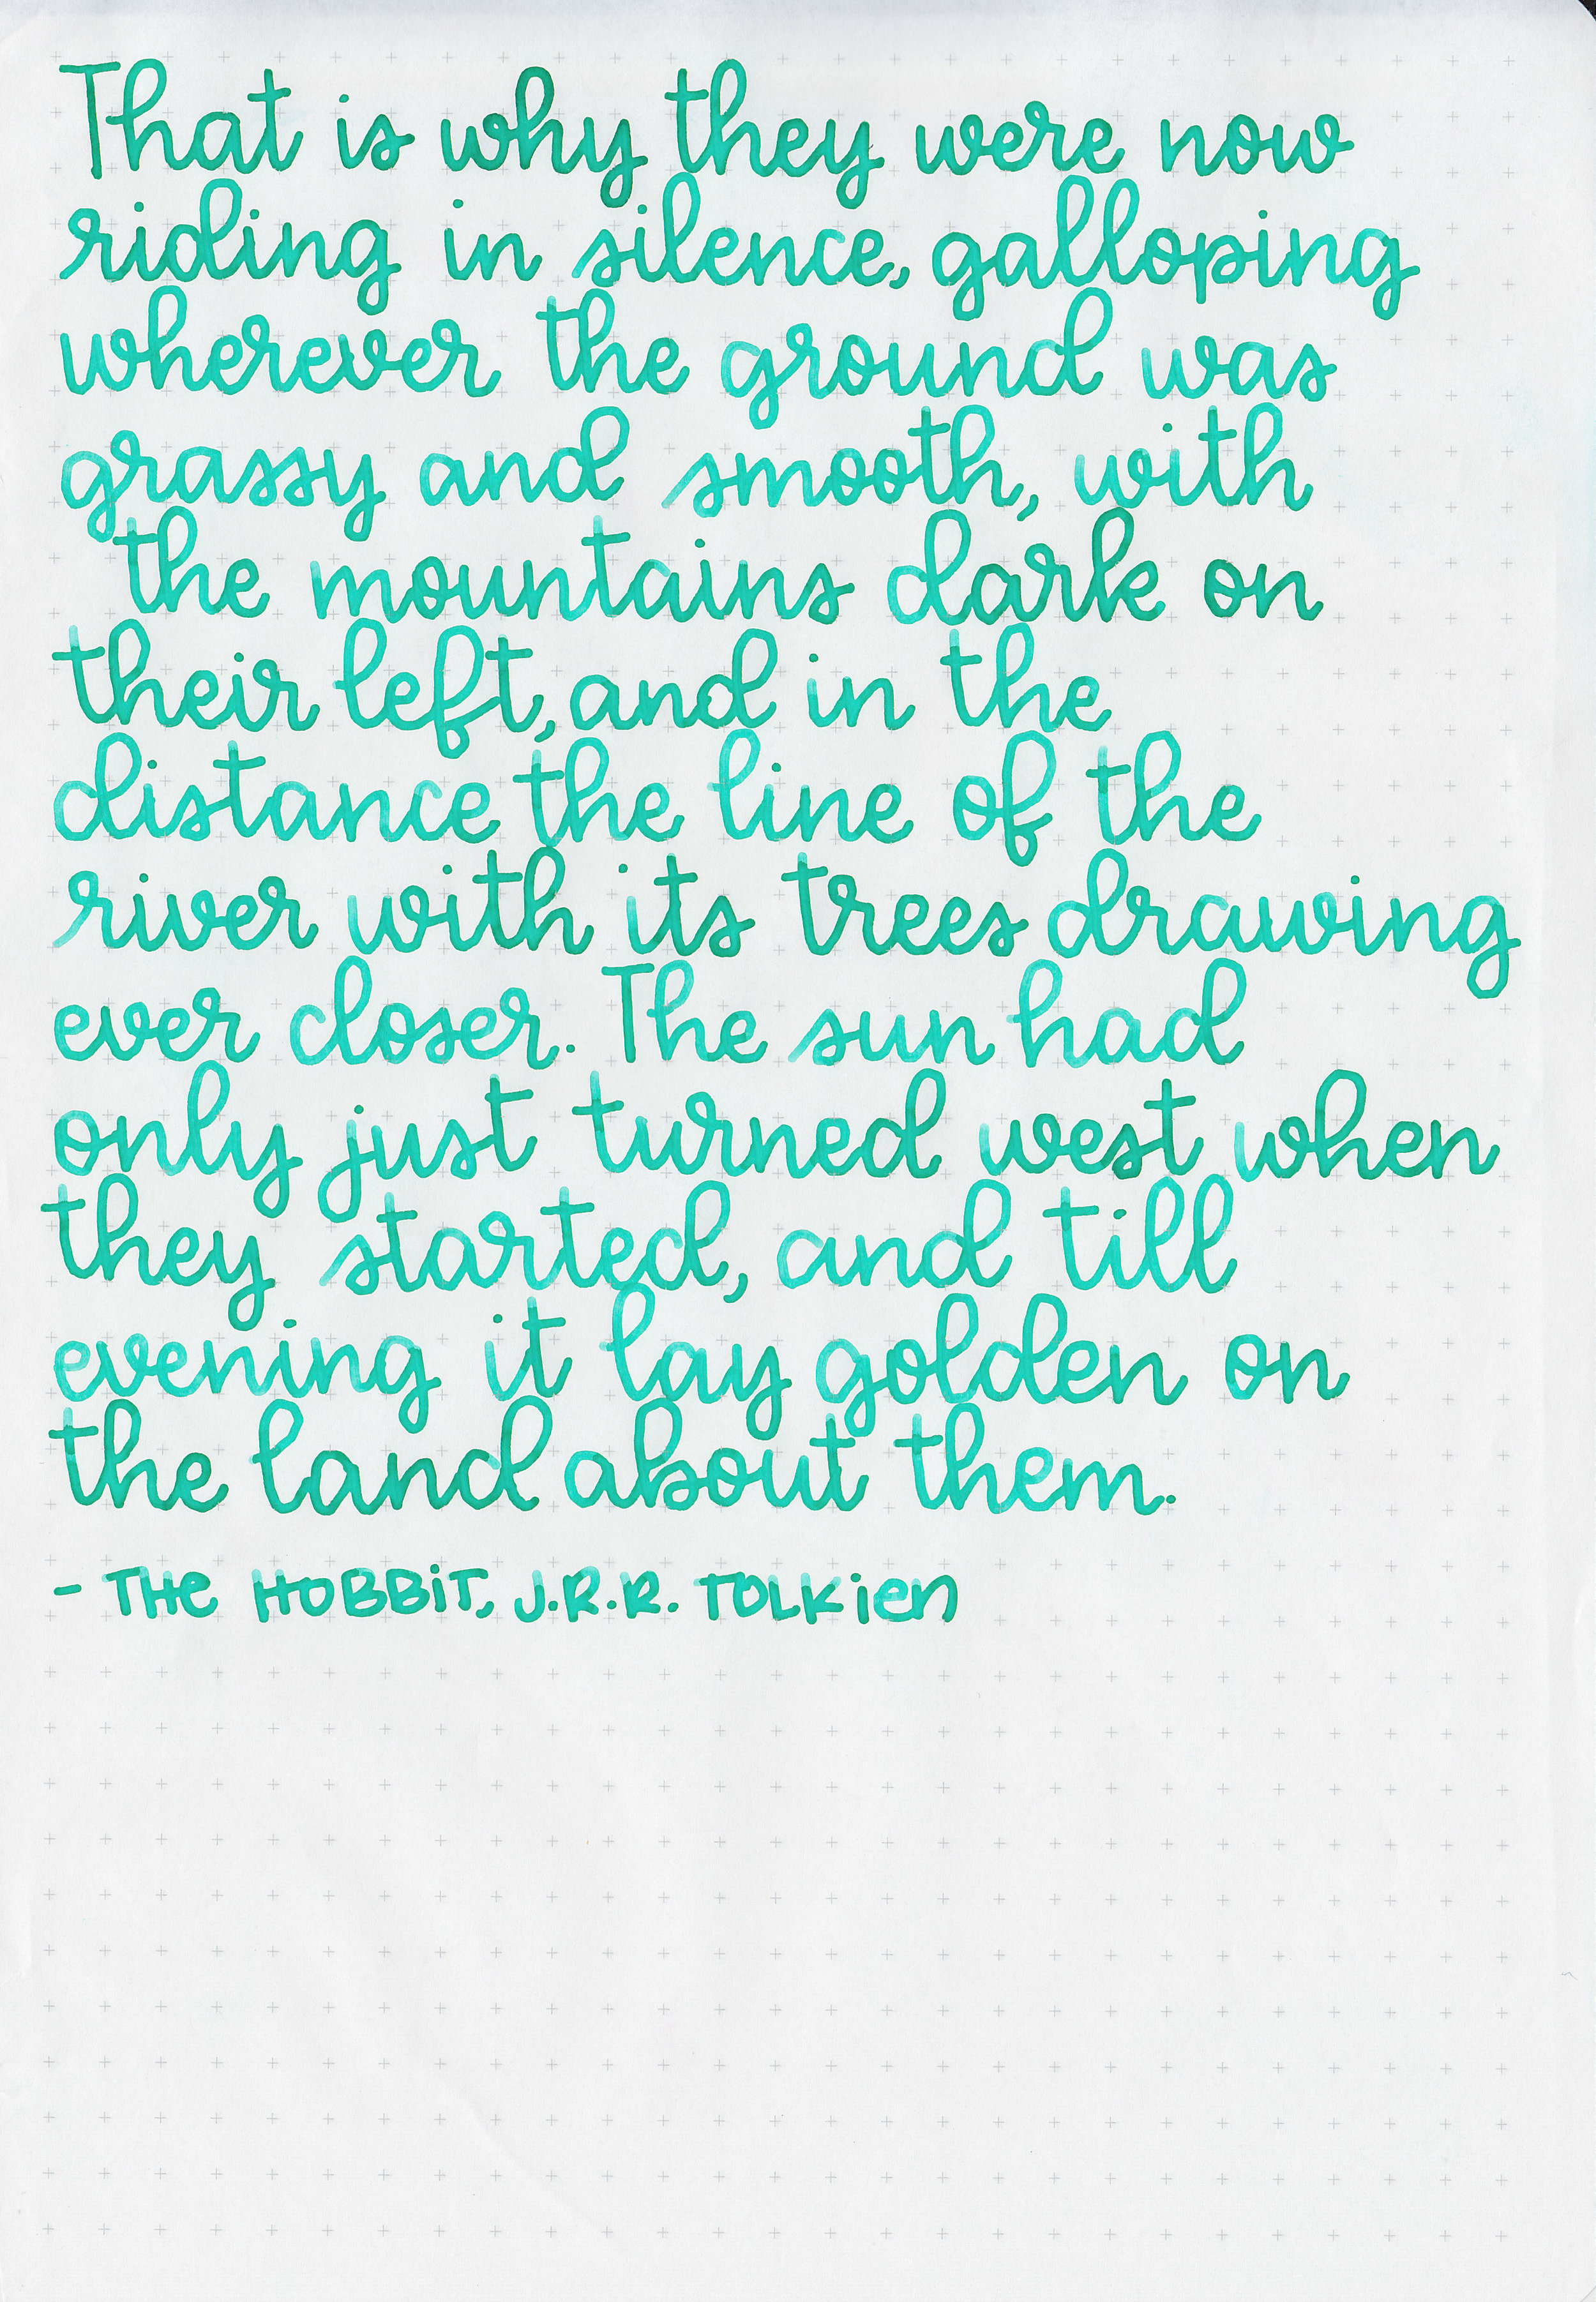 That is why they were now
riding in silence, galloping
wherever the ground was
grassy and smooth, with
the mountains dark on
their left, and in the
distance the line of the
river with its trees drawing
ever closer. The sun had
only just turned west when
they started, and till
evening it lay golden on
the land about them.
- THe HOBBiT, J.R.R. TOLKien